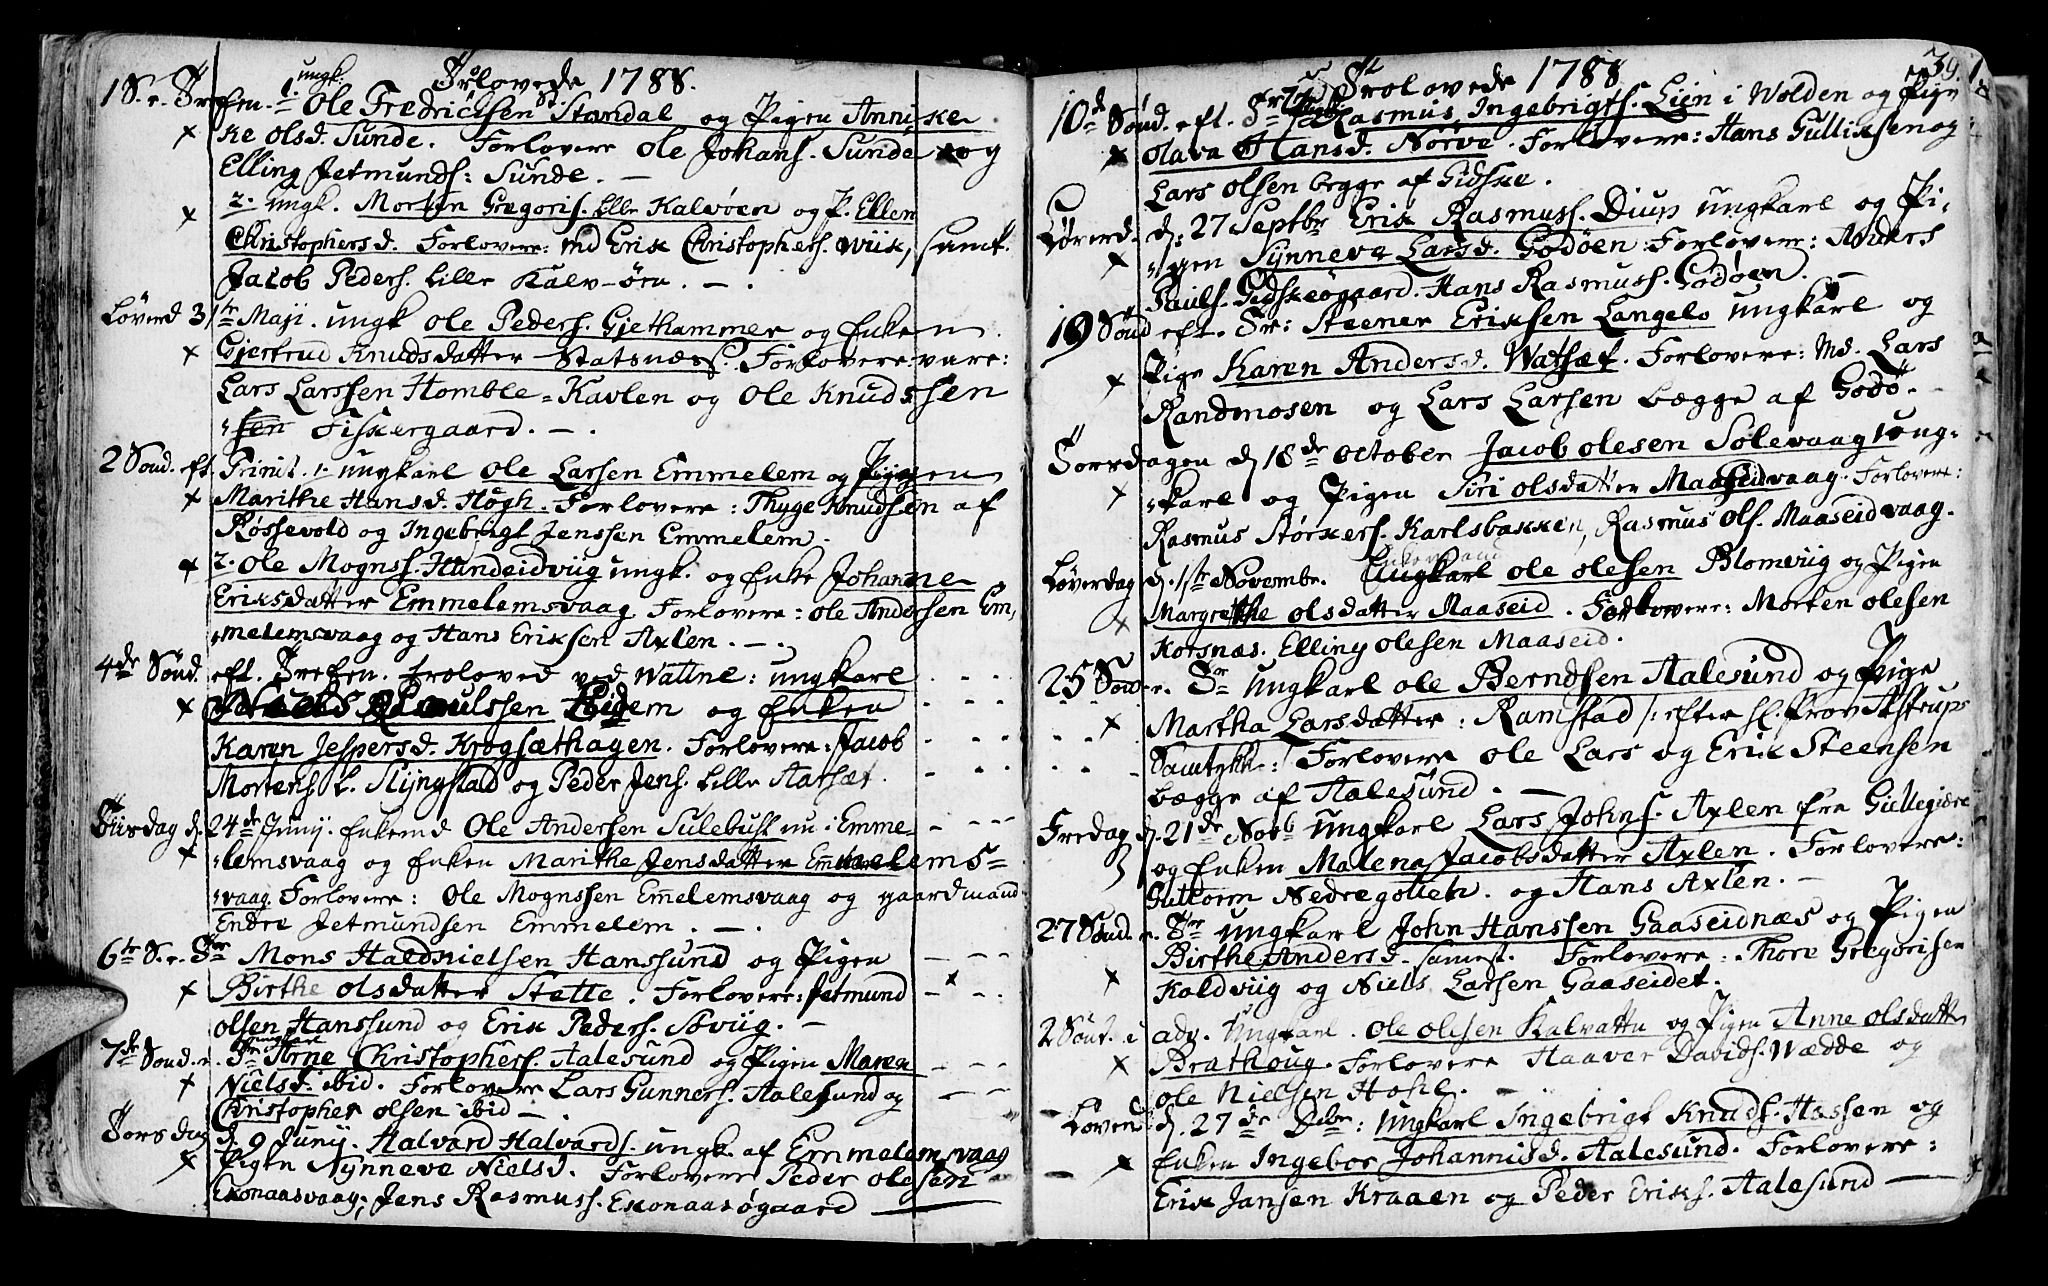 Trolovede 1788.
1 S. e. Trefen. 1. ungk: Ole Fredrichsen Standal og Pigen Anni-
ke Olsd. Sunde. Forlovere Ole Johans. Sunde og
Elling Jetmunds: Sunde. -
2. ungk. Morten Gregoris. Lille Kalvøen og P. Ellen
Christophersd. Forlovere: Md Erik Christophers. Wiik, samt
Jacob Peders. Lille Kalv-øen. -.
Løverd 31te Maji. ungk Ole Peders. Gjethammer og Enken
Gjertrud Knudsdatter Statsnæss. Forlovere vare:
Lars Larssen Homble-Kavlen og Ole Knudssen
sen Fiskergaard. -.
2 Sønd. eft. Trinit. 1. ungkarl Ole Larsen Emmelem og Pigen
Marithe Hansd. Høgh. Forlovere: Thyge Knudsen af
Røssevold og Ingebrigt Jenssen Emmelem.
2. Ole Mognss. Hundeidviig ungk. og Enke Johanne
Eriksdatter Emmelemsvaag Forlovere: Ole Andersen Em-
melemsvaag og Hans Eriksen Axlen. -.
4de Sønd. eft. Trefen. troloved ved Watne: ungkarl
Paulssen Eidem og Enken
Karen Jespersd. Krogsæthagen. Forlovere: Jacob
Mortens L. Slyngstad og Peder Jens. Lille Aarsæt.
Tiirsdag d. 24de Junij. Enkemd Ole Andersen Sulebust nu i Emme-
lemsvaag og Enken Marithe Jensdatter Emmelems-
vaag. Forlovere: Ole Mognssen Emelemsvaag og gaardmand
Endre Jetmundsen Emmelem. -.
6te S. e. Tr Mons Haldnielsen Hanssund og Pigen
Birthe Olsdatter Stette. Forlovere: Jetmund
Olsen Hanssund og Erik Peders. Søviig. -
7de Sønd. e. Tr ungkarl Arne Christophers. Aalesund og Pigen Maren
Nielsd. ibid. Forlovere Lars Gunners. Aalesund og
Christopher Olsen ibid -.
Torsdag d. 9 Juny. Halvard Halvards. ungk. af Emmelemsvaag
Pigen Synneve Nielsd. Forlovere Peder Olesen
Exonaasvaag, Jens Rasmuss. Exonaasøgaard
Trolovede 1788
39.
10de Sønd. eft. Tr Rasmus Ingebrigts. Lien i Wolden og Pige
Olava Hansd. Nørve. Forlovere: Hans Gulliksen og
Lars Olsen begge af Gidske.
Løverd. d. 27 Septbr Erik Rasmuss. Diup ungkarl og Pi-
gen Synneve Larsd. Godøen. Forlovere: Anders
Pauls. Gidskeøgaard. Hans Rasmuss. Godøen. -
19 Sønd eft. Tr: Steener Eriksen Langelo ungkarl og
Pige Karen Andersd. Watsæt. Forlovere: Md. Lars
Randmosen og Lars Larsen bægge af Godø. -
Torsdagen d 18de October Jacob Olesen Solevaag ung-
karl og Pigen Siri Olsdatter Maaseidvaag. Forlovere:
Rasmus Størkers. Karlsbakken, Rasmus Ols. Maaseidvaag.
Løverdag d. 1ste Novembr. Enkemand Ungkarl Ole Olesen Blomviig og Pigen
Margrethe Olsdatter Maaseid. Forlovere: Morten Olesen
Kotsnæs. Elling Olesen Maaseid.
25 Sønd. e. Tr Ungkarl Ole Berndsen Aalesund og Pige
Martha Larsdatter: Ramstad /: efter sl. Prov. Astrups
Samtykke: Forlovere Ole Lars og Erik Steensen
bægge af Aalesund. -
Fredag d. 21de Novb Ungkarl Lars Johns. Axlen fra Gullegiære
og Enken Malena Jacobsdatter Axlen. Forlovere:
Guttorm Nedregotteh. og Hans Axlen. -
27 Sønd. e. Tr Ungkarl John Hanssen Gaaseidnæs og Pigen
Birthe Andersd. samest. Forlovere: Thore Gregorisen
Koldviig og Niels Larsen Gaaseidet.
2 Sønt. i adv. Ungkarl. Ole Olesen Kalvattn og Pigen Anne Olsdattr
Brathoug. Forlovere Haaver Davids. Wædde og
Ole Nielsen Hofll. -
Løverd: d. 27de Dcbr: ungkarl Ingebrigt Knuds. Hassen og
Enken Ingebor Johannisd. Aalesund. Forlovere:
Erik Jansen Kraaen og Peder Eriks. Aalesund -